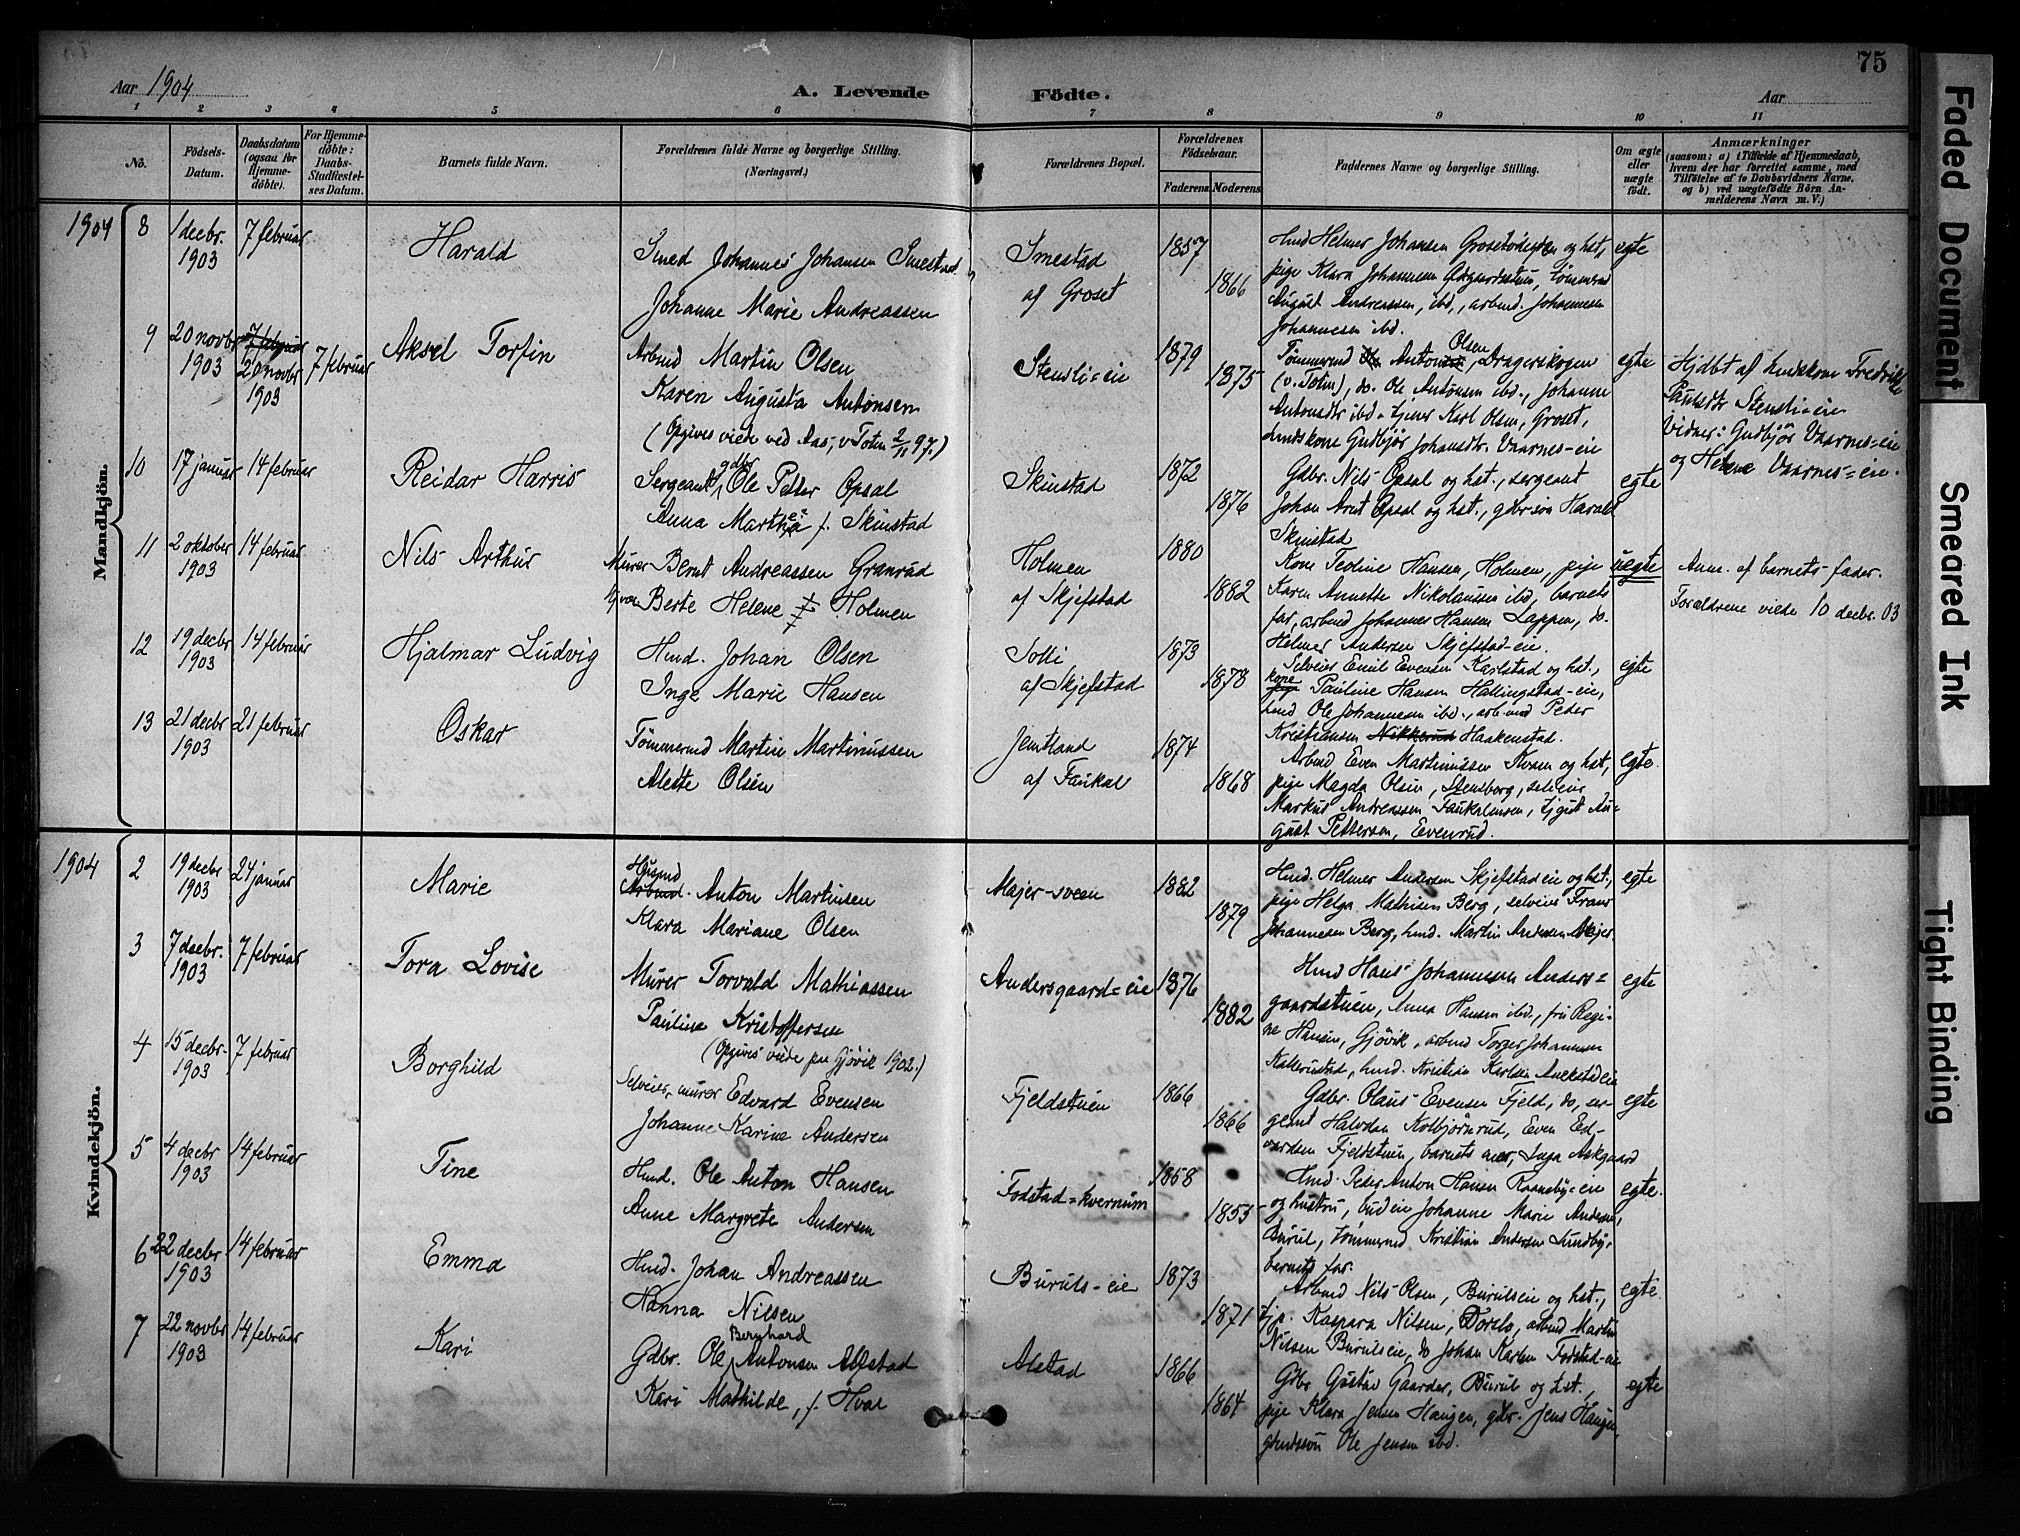 75
Aar 1904
A. Levende Födte.
Aar
1 2 3 4 5 6 7 8 9 10 11
No.
Födsels-Datum.
Daabsdatum (ogsaa for Hjemmedöbte).
For Hjemmedöbte: Daabs-Stadfæstelses Datum.
Barnets fulde Navn.
Forældrenes fulde Navne og borgerlige Stilling. (Næringsvei.)
Forældrenes Bopæl.
Forældrenes Födselsaar.
Faderens Moderens
Faddernes Navne og borgerlige Stilling.
Om ægte eller uægte födt.
Anmærkninger
(saasom: a) i Tilfælde af Hjemmedaab, hvem der har forrettet samme, med Tilföielse af to Daabsvidners Navne, og b) ved uægtefödte Börn Anmelderens Navn m. V.)
Mandkjön.
1904 8 1 decbr 1903 7 februar Harald
Smed Johannes Johansen Smestad
Johanne Marie Andreassen
Smestad af Groset 1857 1866
Hmd Helmer Johansen Grosetödegaen og hst,
pige Klara Johannesen Ødegaardstuen, tømmermd
August Andreassen, ibd., arbmd. Johannes
Johannesen ibd.
egte
9 20 novbr 1903 7 februar 20 novbr 1903 7 februar Aksel Torfin
Arbmd Martin Olsen
Karen Augusta Antonsen
(Opgives viede ved Aas, v Toten 2/11 97.)
Stensli=eie 1879 1875
Tømmermd Anton Olsen, Dragerskogen
(v. Toten), do. Ole Antonsen ibd., Johanne
Antonsdtr ibd., tjener Karl Olsen, Groset,
Indskone Gudbjør Johansdtr. Vaarnes-eie
egte
Hjdbt af Indskone Fredrikke
Paulsdtr Stensli=eie
Vidner: Gudbjør Vaarnes=eie
og Helene Vaarnes=eie.
10 17 januar 14 februar Reidar Harris
Sergeant, gdbr Ole Petter Opsal
Anna Marthea f. Skinstad
Skinstad 1872 1876
Gdbr. Nils Opsal og hst., sergeant
Johan Arnt Opsal og hst., gdbrsön Harald
Skinstad
egte
11 2 oktober 1903 14 februar Nils Arthur
Murer Bernt Andreassen Granrud
Berte Helene Holmen
Holmen af Skjefstad 1880 1882
Kone Teoline Hansen, Holmen, pige
Karen Annette Nikolaussen ibd, barnets
far, arbmd Johannes Hansen Lappen, do.
Helmer Andersen Skjefstad-eie.
uegte
Anm. af barnets fader.
Forældrene viede 10 decbr. 03
12 19 decbr 1903 14 februar Hjalmar Ludvig
Hmd. Johan Olsen
Inge Marie Hansen
Solli af Skjefstad 1873 1878
Selveier Emil Evensen Karlstad og hst.,
kone Pauline Hansen Hallingstad-eie,
hmd Ole Johannesen ibd., arbmd Peder
Kristiansen Nikkerud Haakenstad.
egte
13 21 decbr 1903 21 februar Oskar
Tömmermd Martin Martinussen
Alette Olsen
Jemtland af Faukal 1874 1868
Arbmd Even Martinussen Kvem og hst,
pige Magda Olsen, Stensborg, selveier
Markus Andreassen Faukalmoen, tjgut August
Pettersen, Evenrud.
egte.
Kvindekjön.
1904 2 19 decbr 1903 24 januar Marie
Husmd Arbmd. Anton Martinsen
Klara Mariane Olsen
Majer-sveen 1882 1879
Hmd. Helmer Andersen Skjefstadeie og hst.,
pige Helga Mathisen Berg, selveier Frans
Johannesen Berg, hmd. Martin Andersen Majer
egte
3 7 decbr. 1903 7 februar Tora Lovise
Murer Torvald Mathiassen
Pauline Kristoffersen
(Opgives viede paa Gjøvik 1902.)
Andersgaard=eie 1876 1882
Hmd Hans Johannesen Anders=
gaardstuen, Anna Hansen ibd., fru Regi-
ne Hansen, Gjövik, arbmd Torger Johannesen
Kallerustad, hmd. Kristian Karlsen Aulestadeie
egte
4 15 decbr. 1903 7 februar Borghild
Selveier, murer Edvard Evensen
Johanne Karine Andersen
Fjeldstuen 1866 1866
Gdbr. Olaus Evensen Fjeld, do, ser-
geant Halvdan Kolbjörnrud, Even Ed-
vardsen Fjeldstuen, barnets mor, Inga Askgaard
egte
5 4 decbr 1903 14 februar Tine
Hmd. Ole Anton Hansen
Anne Margrete Andersen
Fodstad=kvernum 1858 1853
Hmd Peder Anton Hansen Ravnsby=eie
og hustru, budeie Johanne Marie Andersen,
Burul, tömmermd Kristian Andersen Lundby,
barnets far.
egte.
6 22 decbr 1903 14 februar Emma
Hmd. Johan Andreassen
Hanna Nilsen
Buruls-eie 1873 1871
Arbmd Nils Olsen, Burulseie og hst.,
tjp. Kaspara Nilsen, Torslo, arbmd Martin
Nilsen Burulseie, do Johan Karlsen Fodstad-eie
egte
7 22 novbr 1903 14 februar Kari
Gdbr. Ole Bernhard Antonsen Alfstad
Kari Mathilde, f. Hval
Alstad 1866 1864
Gdbr Gustav Gaarder, Burul og hst.,
pige Klara Jensen Haugen, gdbr. Jens Haugen,
gbmdssön Ole Jensen ibd.
egte
Faded Document
Smeared Ink
Tight Binding